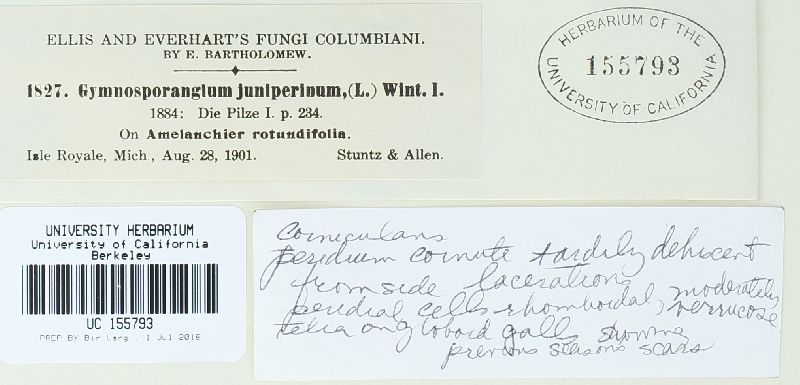 ELLIS AND EVERHART'S FUNGI COLUMBIANI.
BY E. BARTHOLOMEW.
1827. Gymnosporangium juniperinum,(L.) Wint. I.
1884: Die Pilze I. p. 234.
On Amelanchier rotundifolia.
Isle Royale, Mich, Aug. 28, 1901. Stuntz & Allen.
HERBARIUM OF THE
155793
UNIVERSITY OF CALIFORNIA
UNIVERSITY HERBARIUM
University of California
Berkeley
UC 155793
PREP BY 1 Jul 2016
corniculans
peridium cornute tardily dehiscent
from side lacerations
peridial cells rhomboidal, moderately
verrucose
telia on globoid galls
previous seasons scars